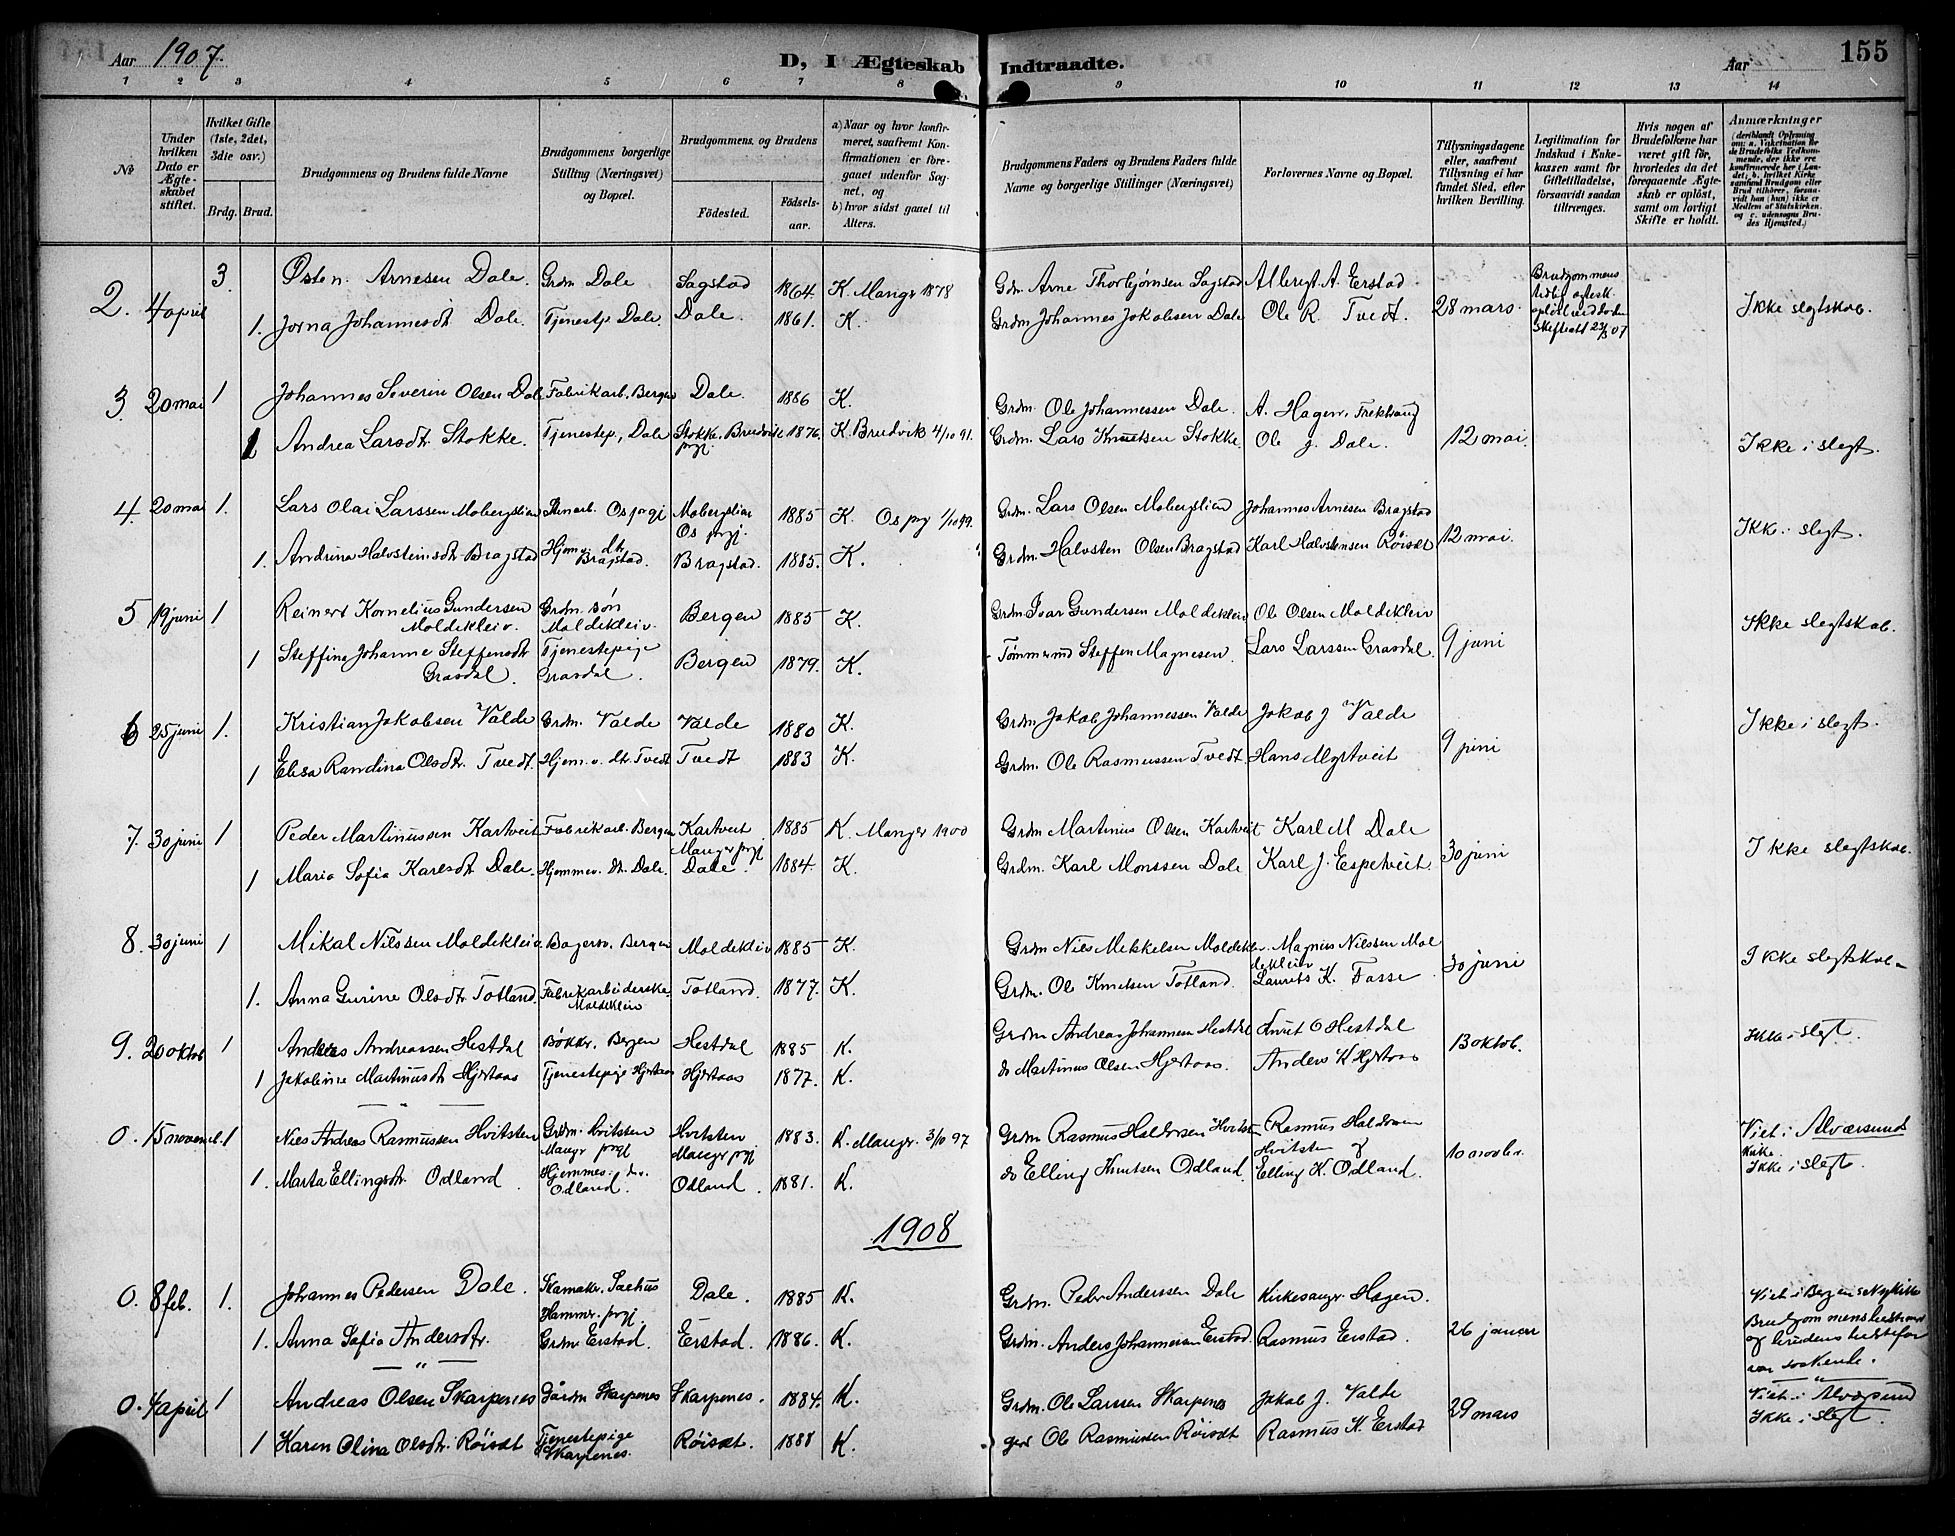 Aar 1907.
D, I Ægteskab Indtraadte.
Aar 155
1 2 3 4 5 6 7 8 9 10 11 12 13 14
No
Under hvilken Dato er Ægteskabet stiftet.
Hvilket Gifte (1ste, 2det, 3die osv.)
Brdg. Brud.
Brudgommens og Brudens fulde Navne
Brudgommens borgerlige Stilling (Næringsvei) og Bopæl.
Brudgommens og Brudens
Fødested. Fødselsaar.
a) Naar og hvor konfirmeret, saafremt Konfirmationen er foregaaet udenfor Sognet, og
b) hvor sidst gaaet til Alters.
Brudgommens Faders og Brudens Faders fulde Navne og borgerlige Stillinger (Næringsvei)
Forlovernes Navne og Bopæl.
Tillysningsdagene eller, saafremt Tillysning ei har fundet Sted, efter hvilken Bevilling.
Legitimation for Indskud i Enkekassen samt for Giftetilladelse, forsaavidt saadan tiltrænges.
Hvis nogen af Brudefolkene har været gift før, hvorledes da det foregaaende Ægteskab er opløst, samt om lovligt Skifte er holdt.
Anmærkninger
(deriblandt Oplysning om: a. Vakcination for de Brudefolks Vedkommende, der ikke ere konfirmerede her i Landet; b. hvilket Kirkesamfund Brudgom eller Brud tilhører, forsaavidt han (hun) ikke er Medlem af Statskirken, og c. udensogns Brudes Hjemsted.)
2. 4 april 3. Østen Arnesen Dale. Grdm Dale Sagstad 1864. K. Manger 1878 Gdm. Arne Thorbjørnsen Sagstad Albregt A. Eerstad
1. Jorna Johannesdt. Dale. Tjenestp. Dale. Dale. 1861. K. Grdm Johannes Jakobsen Dale Ole R. Tvedt. 28 mars. Ikke slegtskab.
3 20 mai 1 Johannes Severin Olsen Dale Fabrikarb. Bergen Dale. 1886 K. Grdm. Ole Johannessen Dale. A. Hagen,
1 Andrea Larsdt. Stokke. Tjenestep, Dale Stokke. Brudvik prgj 1876. K. Brudvik 4/10 91. Grdm. Lars Knutsen Stokke Ole J. Dale. 12 mai. Ikke i slegt.
4. 20 mai 1. Lars Olai Larssen Mobergslien Stenarb. Os prgj Mobergslien Os prgj. 1885 K. Os prg 1/10 99. Grdm. Lars Olsen Mobergslien Johannes Arnesen Bragstad
1. Andrina Halvsteinsdt Bragstad Hjemv. dt. Bragstad. Bragstad. 1885. K. Grdm. Halvsten Olsen Bragstad Karl Halvstensen Røisdt 12 mai. Ikke i slegt.
5 19 juni 1 Reinert Kornelius Gundersen Moldekleiv. Grdm. søn Moldekleiv. Bergen 1885 K. Grdm. Ivar Gundersen Moldekleiv Ole Olsen Moldekleiv
1 Steffine Johanne Steffensdt Grasdal. Tjenestepige Grasdal. Bergen 1879. K. Tømmermd Steffen Magnesen. Lars Larssen Grasdal. 9 juni Ikke slegtskab.
6 25 juni 1. Kristian Jakobsen Valde Grdm. Valde Valde 1880 K. Grdm Jakob Johannessen Valde Jakob J Valde
1 Elisa Randina Olsdtr. Tvedt. Hjem. v. dtr. Tvedt Tvedt 1883 K. Grdm. Ole Rasmussen Tvedt. Hans Myrtveit 9 juni Ikke i slegt.
7. 30 juni 1 Peder Martinussen Kartveit Fabrikarb. Bergen Kartveit Manger prgj 1885 K. Manger 1900 Grdm Martinus Olsen Kartveit Karl M Dale
1 Maria Sofia Karlsdt Dale. Hjemmev. dt. Dale. Dale. 1884. K. Grdm. Karl Monssen Dale Karl J. Espetveit. 30 juni Ikke slegtskab.
8. 30 juni 1 Mikal Nilssen Moldekleiv. Bagersv. Bergen Moldekleiv 1885 K. Grdm Niels Mikkelsen Moldeklev. Magnus Nilssen Moldekleiv
1. Anna Gurine Olsdtr Totland. Fabrikarbeiderske. Moldekleiv Totland. 1877. K. Grdm. Ole Knutsen Totland. Laurits K. Fosse 30 juni Ikke slegtskab
9. 20 oktob 1 Andreas Andreassen Hestdal Bøkker, Bergen Hestdal 1885 K. Grdm Andreas Johannesen Hestdal Knut O Hestdal
1 Jakobine Martinusdt Hjertaas Tjenestepige Hjertaas Hjertaas 1877. K. do Martinus Olsen Hjertaas. Anders K Hjertaas 13 oktob. Ikke i slegt.
0. 15 novemb. 1 Niels Andreas Rasmussen Hvitsten Grdm. Hvitsten Manger prgj Hvitsten Manger prgj 1883. K. Manger. 3/10 97 Grdm Rasmus Haldorsen Hvitsten Rasmus Haldorsen Hvitsten og
1. Marta Ellingsdt. Odland. Hjemmev. dtr. Odland. Odland. 1881. K. do Elling Knutsen Odland. Elling K. Odland. 10 novbr. Viet i Alværsund kirke. Ikke i slegt.
1908
0. 8 feb. 1. Johannes Pedersen Dale. Skomaker, Hammer. prgj. Dale. 1885 K. Grdm. Peder Anderssen Dale Kirkesanger Hagen.
1. Anna Sofia Andersdtr. Grdm. Eerstad. Eerstad. 1886. K. Grdm. Anders Johannessen Eerstad. Rasmus Eerstad. 26 januar Viet i Bergens Nykirke
0. 4 april 1 Andreas Olsen Skarpenes Gardm Skarpenes Skarpenes. 1884. K. Grdm. Ole Larssen Skarpenes Jakob J. Valde
1 Karen Olina Olsdtr. Røisdt Tjenestepige Skarpenes. Røisdt. 1888 K. Ole Rasmussen Røisdt Rasmus K. Eerstad 29 mars Viet i Alværsund Ikke i slegt.